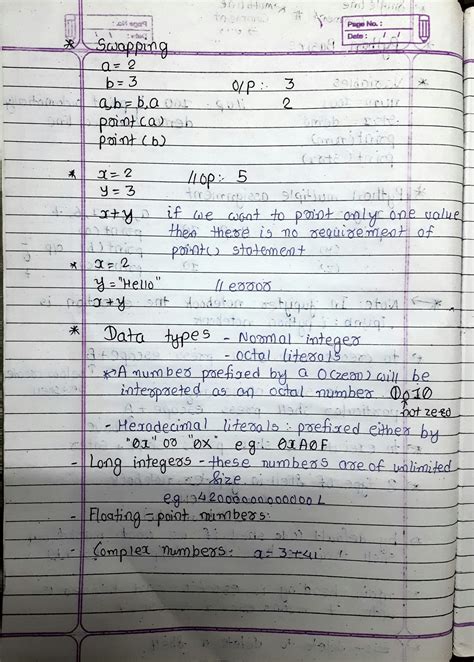 Page No. :
Date :
* Swapping
a = 2
b = 3 O/P :- 3
a,b = b,a 2
print(a)
print(b)
* x = 2 //op:- 5
y = 3
x+y if we want to print only one value
then there is no requirement of
print() statement
* x = 2
y = "Hello" // error
x+y
* Data types - Normal integer
- octal literals
* A number prefixed by a 0(zero) will be
interpreted as an octal number
not zero
- Hexadecimal literals : prefixed either by
"0x" or "0X" e.g: 0XA0F
- Long integers - these numbers are of unlimited
size
- Floating-point numbers
- Complex numbers: a = 3+4i